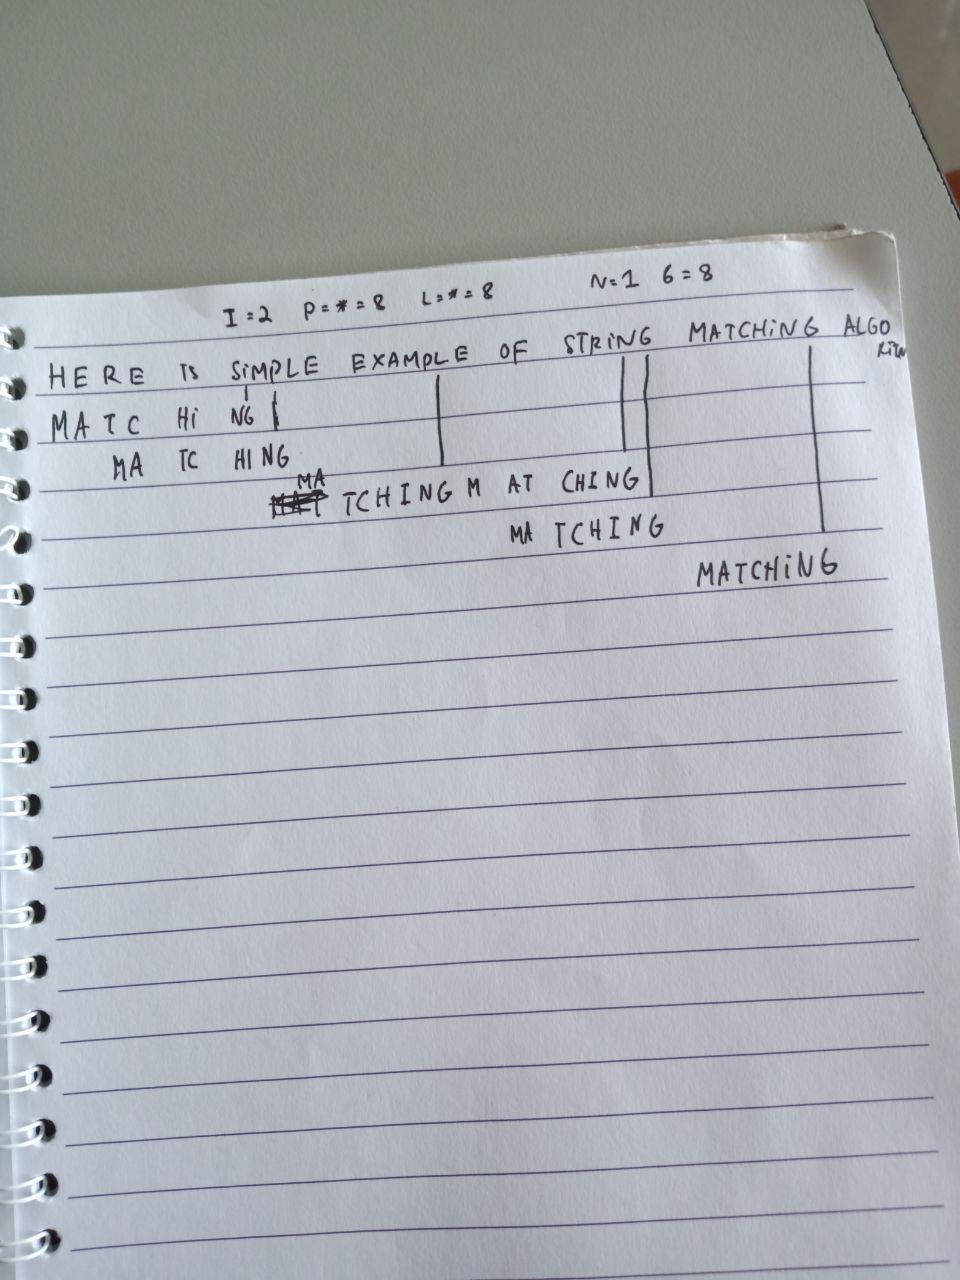 I=2 P=*=8 L=*=8 N=1 6=8
HERE IS SiMPLE EXAMPLE OF STRiNG MATCHiNG ALGO
RiTM
MATC Hi NG
MA TC HING
MA
TCHING M AT CHING
MA TCHING
MATCHiNG